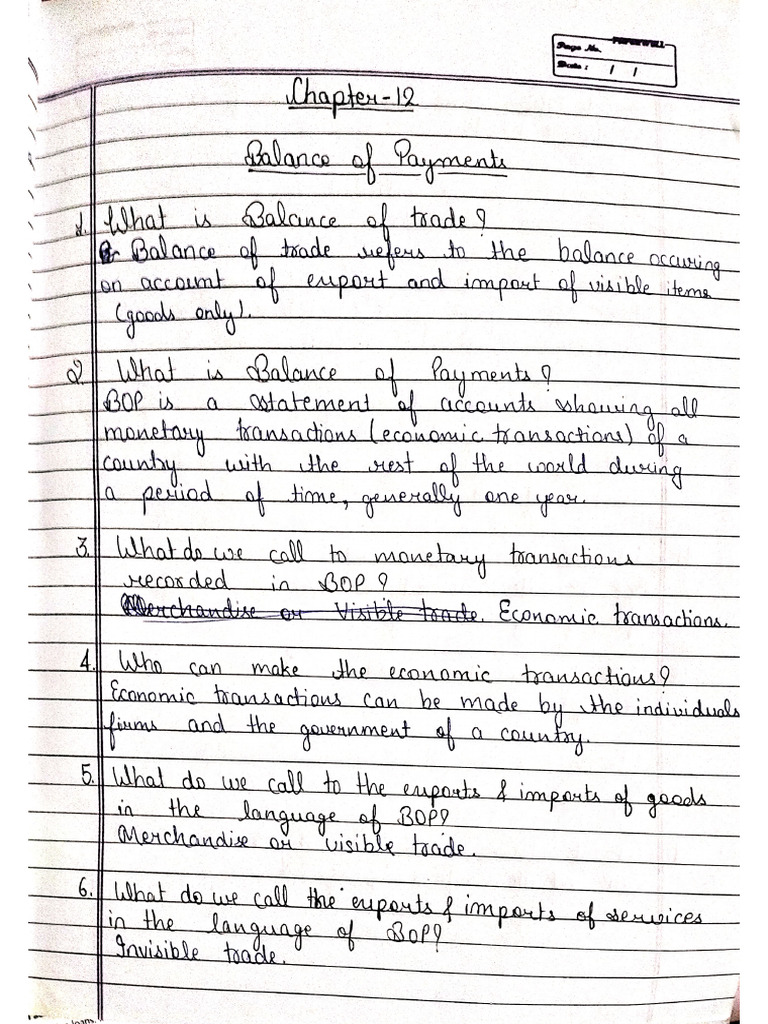 PAPERWELL
Page No.
Date : / /
Chapter-12
Balance of Payments
1. What is Balance of trade?
Balance of trade refers to the balance occuring
on account of export and import of visible items
(goods only).
2. What is Balance of Payments?
BOP is a statement of accounts showing all
monetary transactions (economic transactions) of a
country with the rest of the world during
a period of time, generally one year.
3. What do we call to monetary transactions
recorded in BOP?
Merchandise or Visible trade. Economic transactions.
4. Who can make the economic transactions?
Economic transactions can be made by the individuals
firms and the government of a country.
5. What do we call to the exports & imports of goods
in the language of BOP?
Merchandise or visible trade.
6. What do we call the exports & imports of services
in the language of BOP?
Invisible trade.